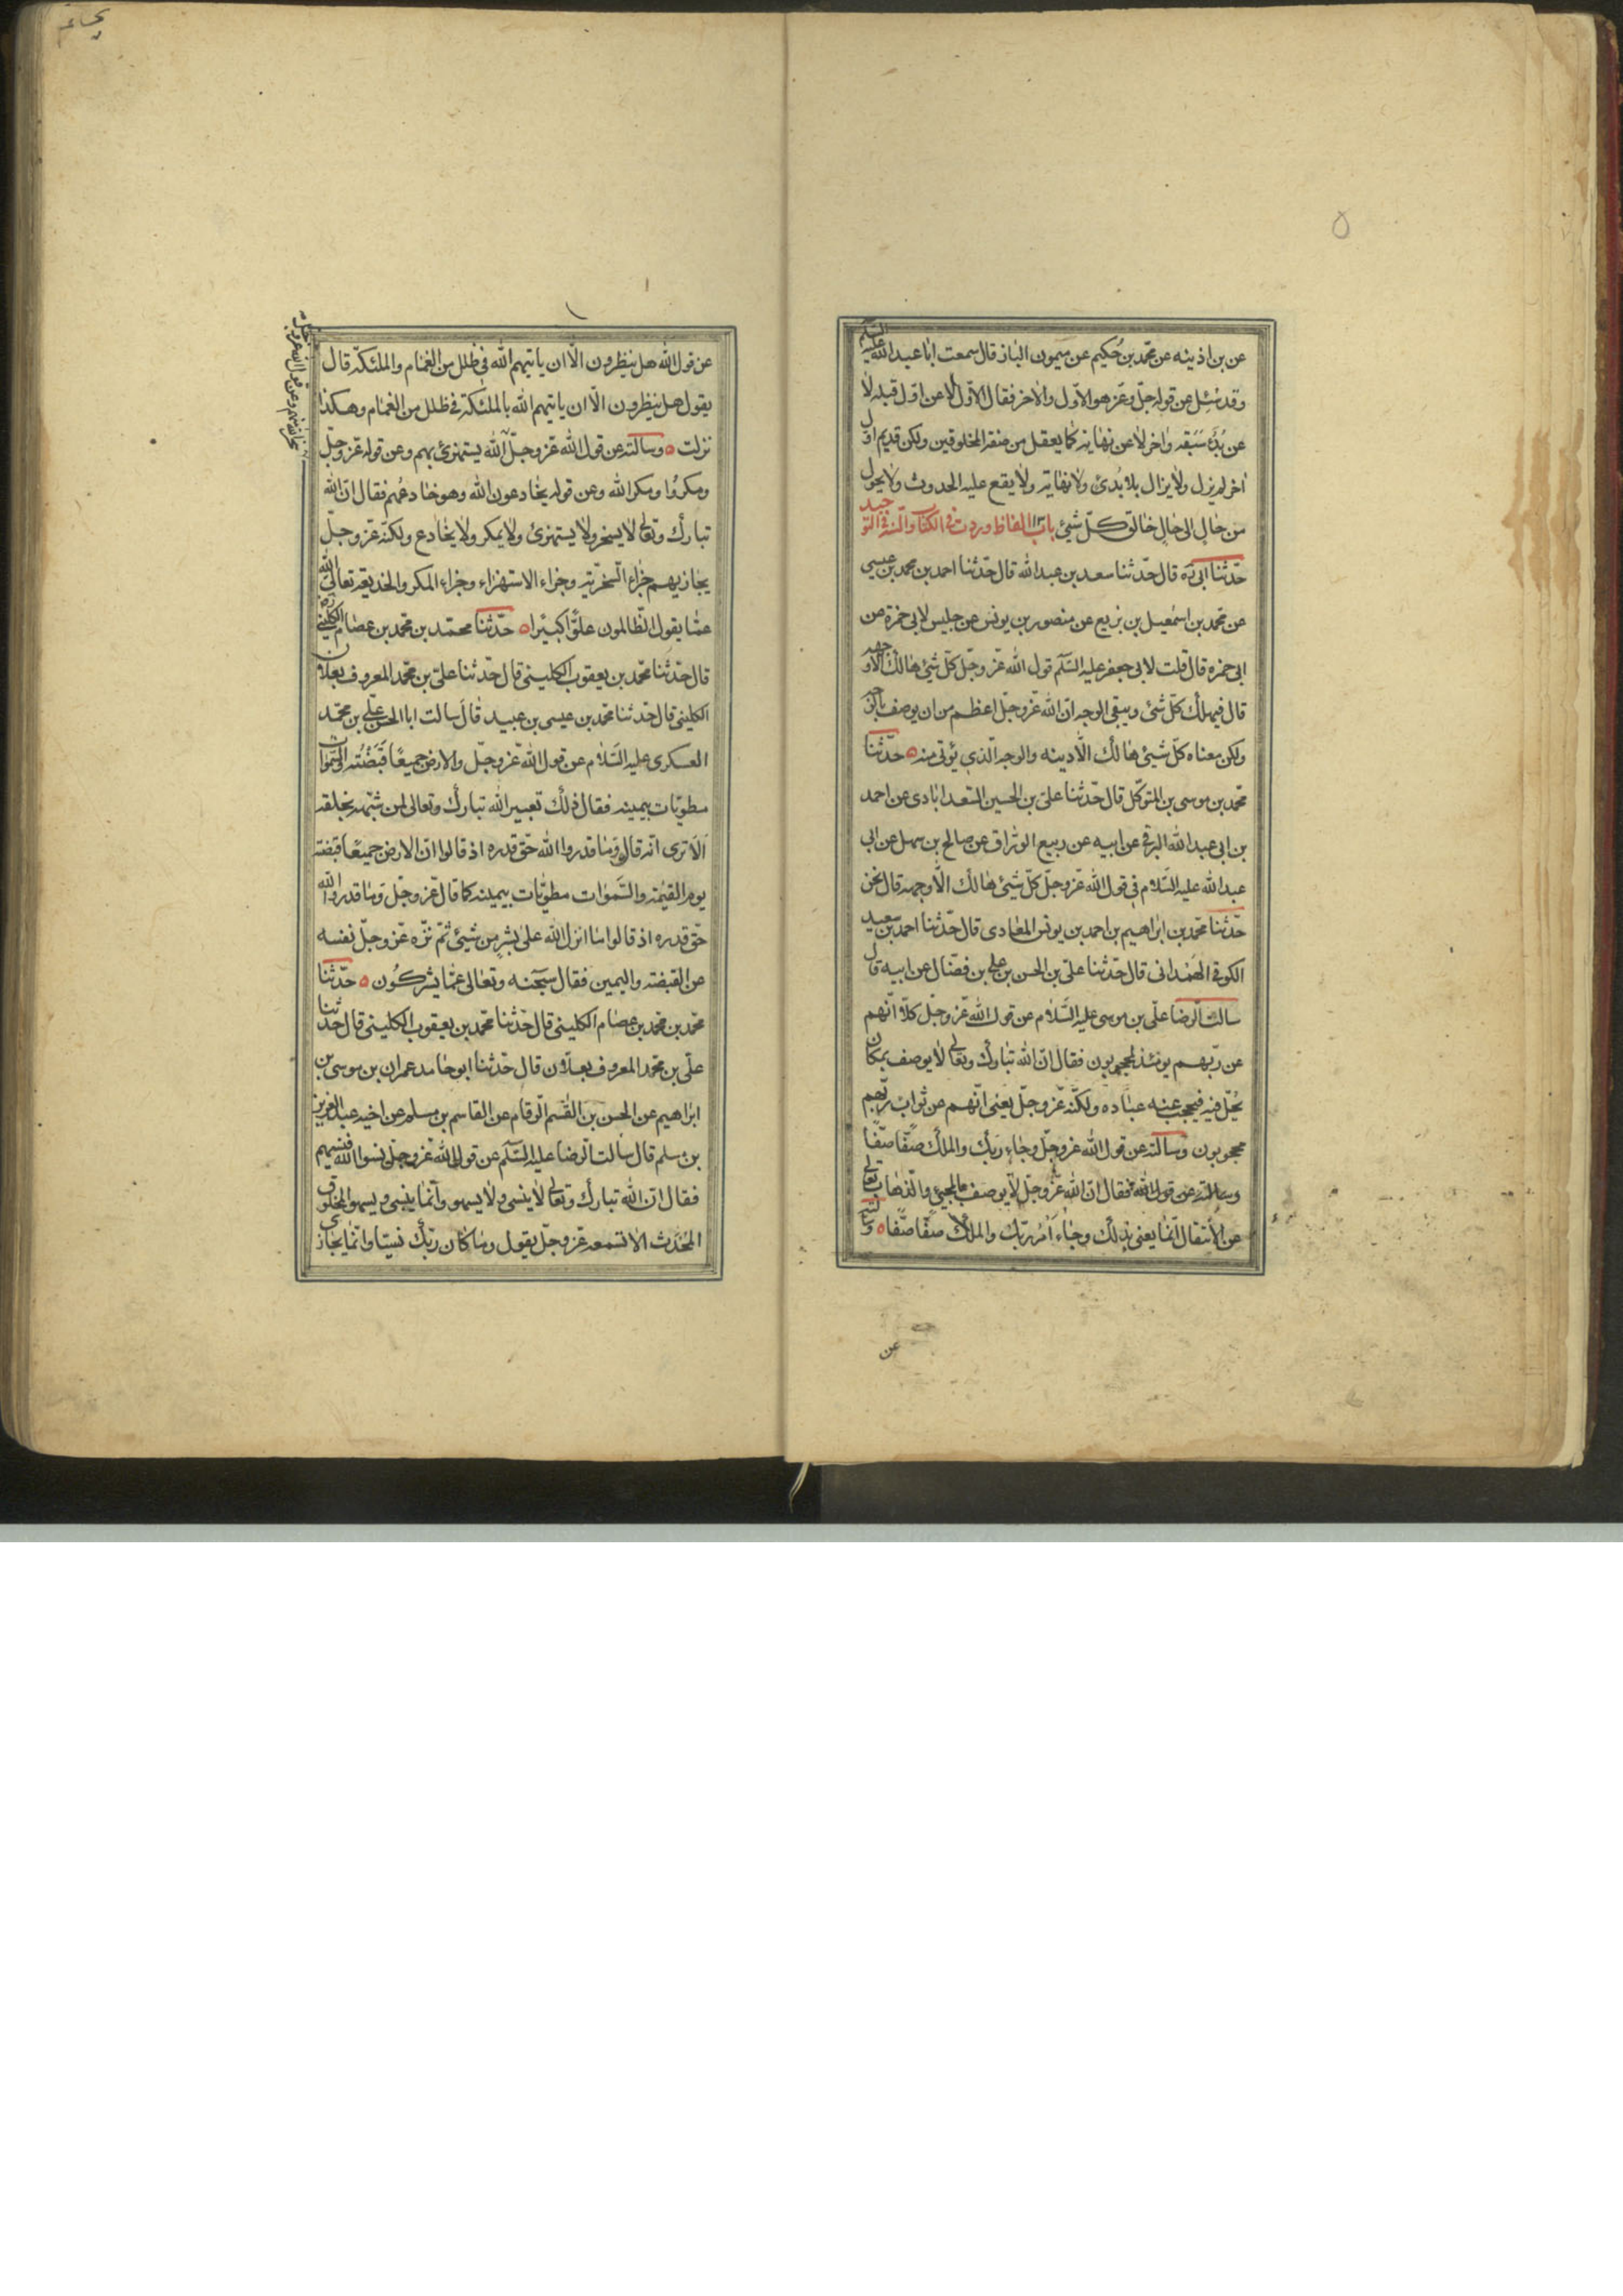 عن بن اذينه عن محمد بن حُكيم عن ميمون البان قال سمعت ابا عبد الله عليه السّلم
وقد سُئِل عن قوله جلّ وعزّ هو الاوّل والاخر فقال الاوّل لا عن اوّل قبله لا
عن بُدَّ سَبَقه واخر لا عن نهاية كما يعقل من صفة المخلوقين ولكن قديم اوّل
اخر لم يزل ولا يزال بلا بُدئ ولا نهاية ولا يقع عليه الحدوث ولا يحول
من حالٍ الى حالٍ خالق كلّ شيئ باب الفاظ وردت في الكتاب والسّنة في التوحيد
حدّثنا ابى ره قال حدّثنا سعد بن عبد الله قال حدّثنا احمد بن محمد بن عيسى
عن محمد بن اسمعيل بن بزيع عن منصور بن يونس عن جليس لابى حمزة عن
ابى حمزه قال قلت لابى جعفر عليه السّلم قول الله عزّ وجلّ كلّ شيئ هالك الّا وجهه
قال فيهلك كلّ شئ ويبقى الوجه انّ الله عزّ وجلّ اعظم من ان يوصف بالوجه
ولكن معناه كلّ شيئ هالك الّا دينه والوجه الّذي يؤتى منه ه حدّثنا
محمّد بن موسى بن المتوكّل قال حدّثنا علىّ بن الحسين السّعدابادى عن احمد
بن ابى عبد الله البرقى عن ابيه عن ربيع الورّاق عن صالح بن سهل عن ابى
عبد الله عليه السّلام فى قول الله عزّ وجلّ كلّ شيئ هالك الّا وجهه قال نحن
حدّثنا محمّد بن ابراهيم بن احمد بن يونس المعاذى قال حدّثنا احمد بن سعيد
الكوفى الهَمْدانى قال حدّثنا علىّ بن الحسن بن على بن فضّال عن ابيه قال
سالت الرّضا علىّ بن موسى عليه السّلام عن قول الله عزّ وجلّ كلّا انّهم
عن ربّهم يومئذ لمحجوبون فقال انّ الله تبارك وتعالى لا يوصف بمكان
يُحلّ فيه فيحجب عنه عباده ولكنّه عزّ وجلّ يعنى انّهم عن ثواب ربّهم
محجوبون وسالته عن قول الله عز وجلّ وجاء ربك والملك صفًّا صفًّا
وسالته عن قول الله فقال انّ الله عزّ وجلّ لا يوصف بالمجيئ والذّهاب تعالى
عن الانتقال انّما يعنى بذلك وجاء اَمْرُ ربّك والملك صفًّا صفًّا ه وسالته
عن
عن قول الله هل ينظرون الّا ان ياتيهم الله فى ظلل من الغمام والملئكة قال
يقول هل ينظرون الّا ان ياتيهم الله بالملئكة فى ظلل من الغمام وهكذا
نزلت ه وسالته عن قول الله عزّ وجلّ الله يستهزئ بهم وعن قوله عزّ وجلّ
ومكروُا ومكر الله وعن قوله يخادعون الله وهو خادعُهم فقال انّ الله
تبارك وتعالى لا يسخر ولا يستهزئ ولا يمكر ولا يخادع ولكنّه عزّ وجلّ
يجازيهم جزاء السّخريّة وجزاء الاستهزاء وجزاء المكر والخديعة تعالى الله
عمّا يقول الظّالمون علوًّا كبيرًا ه حدّثنا محمّد بن محمّد بن عصام الكلينى ره
قال حدّثنا محمّد بن يعقوب الكلينى قال حدّثنا علىّ بن محمّد المعروف بعلّان
الكلينى قال حدّثنا محمّد بن عيسى بن عبيد قال سالت ابا الحسن علىّ بن محمّد
العسكرى عليه السّلام عن قول الله عزّ وجلّ والارض جميعًا قَبْضَتُه والسّموات
مطويّات بيمينه فقال ذلك تعبير الله تبارك وتعالى لمن شبّهه بخلقه
اَلَا ترى انّه قال وما قدروا الله حقّ قدره اذ قالوا انّ الارض جميعًا قبضته
يوم القيمة والسّموات مطويّات بيمينه كما قال عزّ وجلّ وما قدروا الله
حقّ قدره اذ قالوا ما انزل الله على بشرٍ من شيئ ثمّ نزّه عزّ وجلّ نفسه
عن القبضة واليمين فقال سبحنه وتعالى عمّا يشركُون ه حدّثنا
محمّد بن محمّد بن عصام الكلينى قال حدّثنا محمّد بن يعقوب الكلينى قال حدّثنا
علىّ بن محمّد المعروف بعلّان قال حدّثنا ابو حامد عمران بن موسى بن
ابراهيم عن الحسن بن القسم الرّقام عن القاسم بن مسلم عن اخيه عبد العزيز
بن مسلم قال سالت الرّضا عليه السّلم عن قول الله عزّ وجلّ نسوا الله فنسيهم
فقال انّ الله تبارك وتعالى لا ينسى ولا يسهو وانّما ينسى ويسهو المخلوق
المُحْدَث الا تسمعه عزّ وجلّ يقول وما كان ربّك نسيّا وانّما يجازى